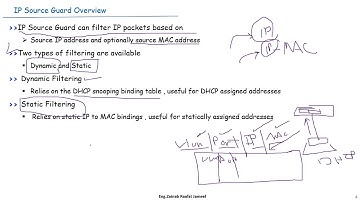 IP Source Guard Overview
>>IP Source Guard can filter IP packets based on
➢ Source IP address and optionally source MAC address
>>Two types of filtering are available
• Dynamic and Static
>> Dynamic Filtering
• Relies on the DHCP snooping binding table , useful for DHCP assigned addresses
>> Static Filtering
• Relies on static IP to MAC bindings , useful for statically assigned addresses
IP
IP - MAC
Vlan | Port | IP | Mac
DHCP
Eng.Zainab Raafat Jameel